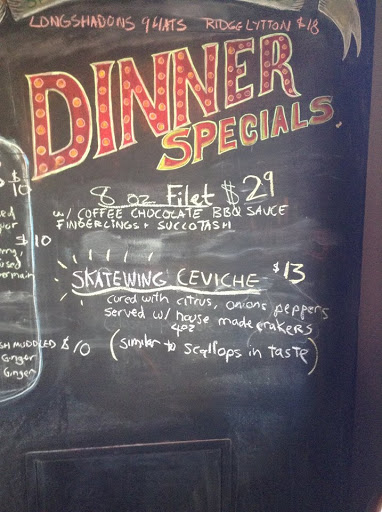 LONGSHADONS 9 HATS RIDGE LYTTON $18
DINNER
SPECIALS
8 oz Filet $29
w/ COFFEE CHOCOLATE BBQ SAUCE
FINGERLINGS + SUCCOTASH
SKATEWING CEVICHE $13
cured with citrus, onions peppers
served w/ house made crakers
4oz
(similar to scallops in taste)
$
10
$10
MUDDLED $10
Ginger
Ginger